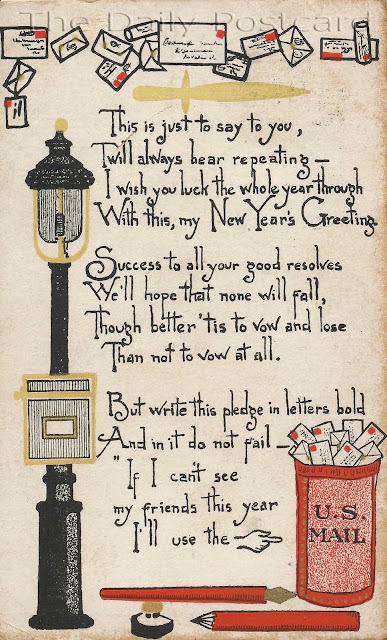 The Daily Postcard
This is just to say to you,
'Twill always bear repeating —
I wish you luck the whole year through
With this, my New Year's Greeting.
Success to all your good resolves
We'll hope that none will fall,
Though better 'tis to vow and lose
Than not to vow at all.
But write this pledge in letters bold
And in it do not fail —
"If I can't see
my friends this year
I'll use the
U.S.
MAIL